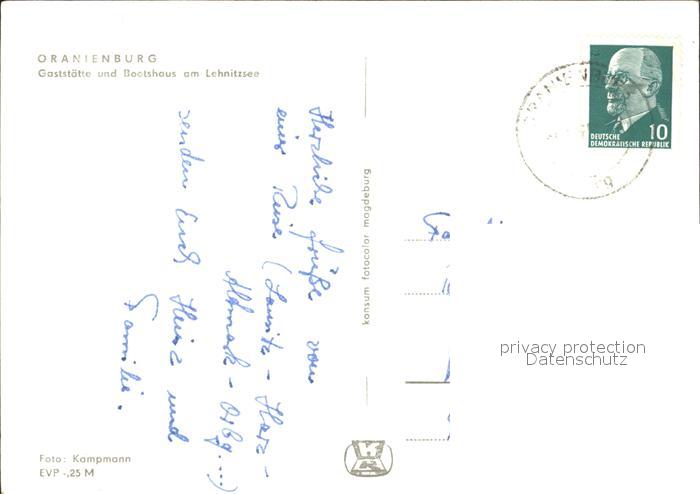 ORANIENBURG
Gaststätte und Bootshaus am Lehnitzsee
Herzliche Grüße von
einer Reise (Lausitz - Harz -
Altmark - Orbg....)
senden Euch Heinz und
Familie.
konsum fotocolor magdeburg
ORANIENBURG
DEUTSCHE
DEMOKRATISCHE REPUBLIK
10
privacy protection
Datenschutz
Foto: Kampmann
EVP -,25 M